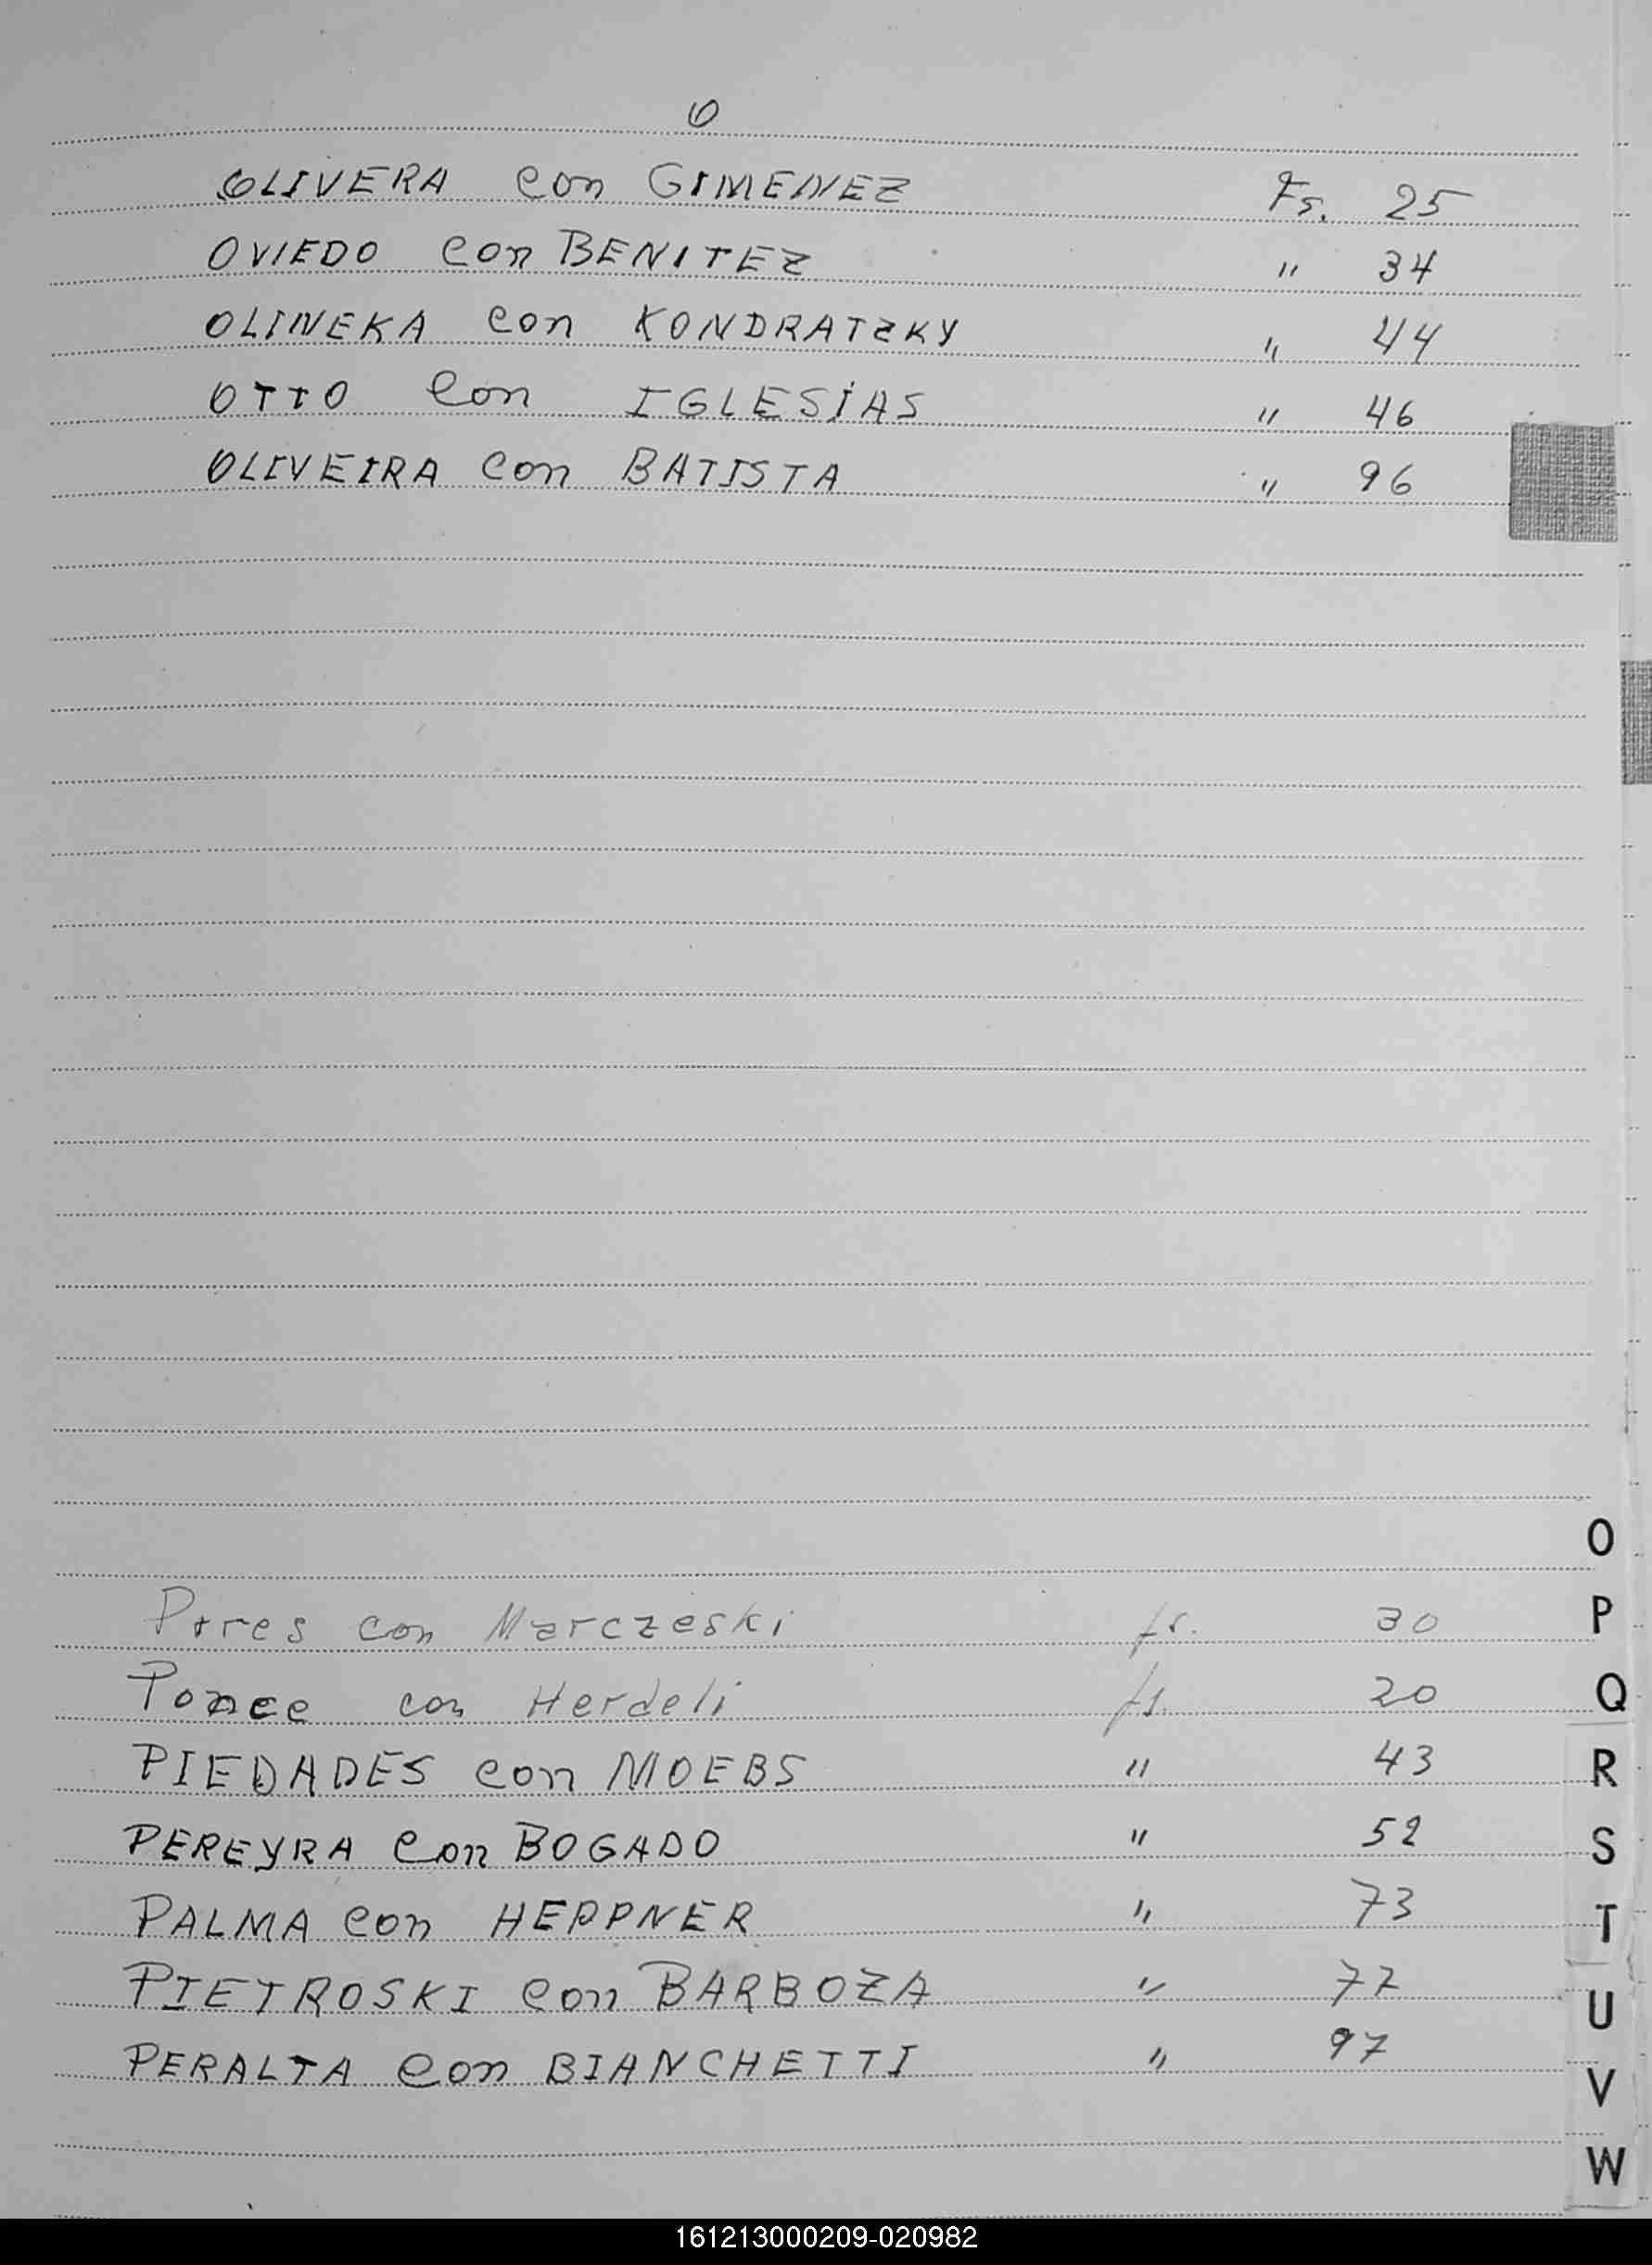 O
OLIVERA con GIMENEZ Fs. 25
OVIEDO con BENITEZ " 34
OLINEKA con KONDRATZKY " 44
OTTO con IGLESIAS " 46
OLIVEIRA con BATISTA " 96
O
Pires con Marczeski fs. 30
P
Ponce con Herdeli fs. 20
Q
PIEDADES con MOEBS " 43
R
PEREYRA con BOGADO " 52
S
PALMA con HEPPNER " 73
T
PIETROSKI con BARBOZA " 77
U
PERALTA con BIANCHETTI " 97
V
W
161213000209-020982